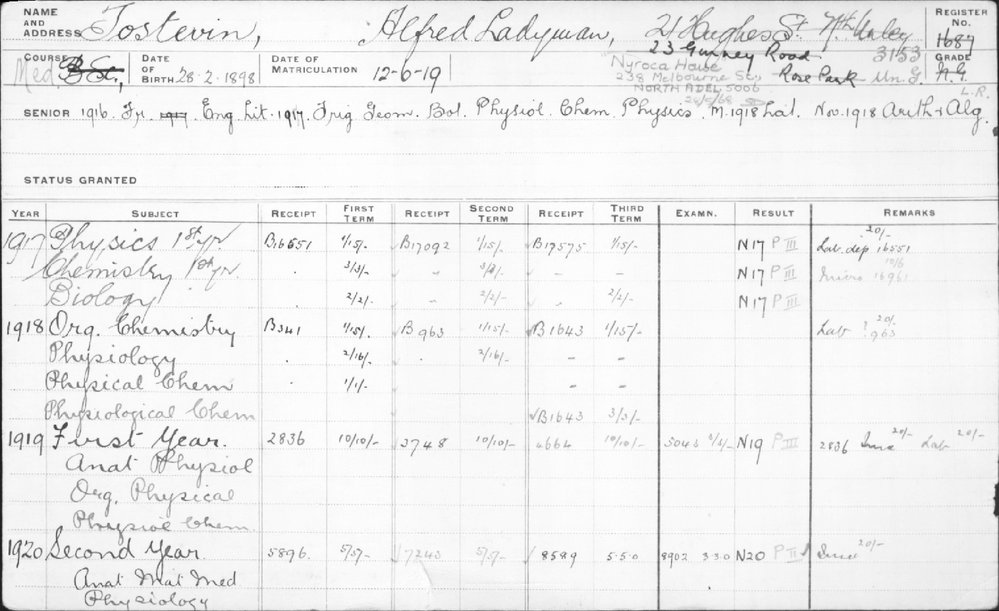 NAME AND ADDRESS Tostevin, Alfred Ladyman, 21 Hughes St. Nth Unley REGISTER No. 1687
23 Gurney Road Rose Park 3153
COURSE B.Sc. Med. DATE OF BIRTH 28-2-1898 DATE OF MATRICULATION 12-6-19 Nyroca House GRADE Un. G.
238 Melbourne St., L.R.
NORTH ADEL 5006
SENIOR 1916. Fr. 1917. Eng. Lit. 1917. Trig Geom. Bot. Physiol. Chem. Physics. M. 1918 Lat. Nov. 1918 Arith & Alg.
STATUS GRANTED
YEAR SUBJECT RECEIPT FIRST TERM RECEIPT SECOND TERM RECEIPT THIRD TERM EXAMN. RESULT REMARKS
1917 Physics 1st yr. B16551 1/15/- B17092 1/15/- B17575 1/15/- N17 P III Lab. dep. 20/- 16551
Chemistry 1st yr. 3/3/- " 3/3/- - - N17 P III Micro 10/6 16961
Biology 2/2/- " 2/2/- - 2/2/- N17 P III
1918 Org. Chemistry B341 1/15/- B963 1/15/- B1643 1/15/- Lab 20/- 963
Physiology 2/16/- 2/16/- - -
Physical Chem 1/1/- - -
Physiological Chem B1643 3/3/-
1919 First Year. 2836 10/10/- 3748 10/10/- 4664 10/10/- 5043 N19 P III 2836 20/- Lab 20/-
Anat Physiol
Org. Physical
Physiol Chem.
1920 Second Year. 5896. 5/5/- 7243 5/5/- 8589 5.5.0 8902 3.3.0 N20 P II 20/-
Anat Mat Med
Physiology